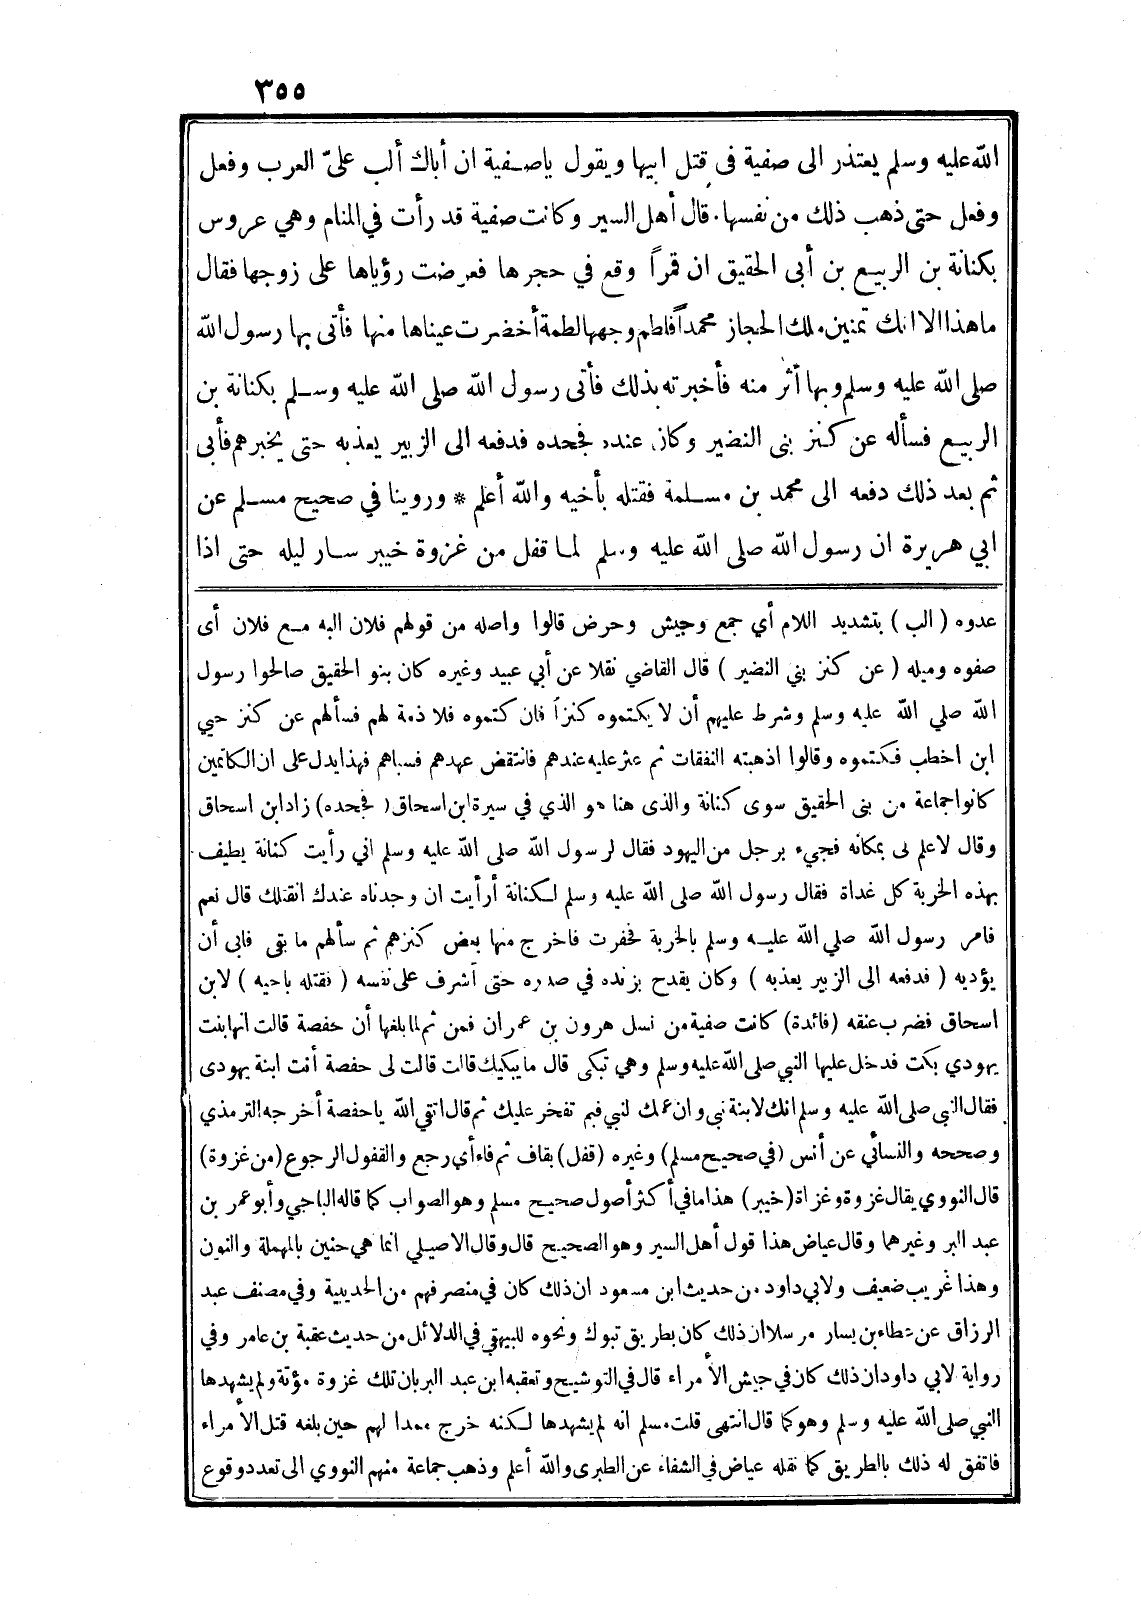 ٣٥٥
الله عليه وسلم يعتذر الى صفية فى قتل ابيها ويقول ياصفية ان أباك ألب علىّ العرب وفعل
وفعل حتى ذهب ذلك من نفسها. قال أهل السير وكانت صفية قد رأت في المنام وهي عروس
بكنانة بن الربيع بن أبى الحقيق ان قمراً وقع في حجرها فعرضت رؤياها على زوجها فقال
ما هذا الا انك تمنين ملك الحجاز محمداً فلطم وجهها لطمة أخضرت عيناها منها فأتى بها رسول الله
صلى الله عليه وسلم وبها أثر منه فأخبرته بذلك فأتى رسول الله صلى الله عليه وسلم بكنانة بن
الربيع فسأله عن كنز بنى النضير وكان عنده فجحده فدفعه الى الزبير يعذبه حتى يخبرهم فأبى
ثم بعد ذلك دفعه الى محمد بن مسلمة فقتله بأخيه والله أعلم * وروينا في صحيح مسلم عن
ابي هريرة ان رسول الله صلى الله عليه وسلم لما قفل من غزوة خيبر سار ليله حتى اذا
عدوه ( الب ) بتشديد اللام أي جمع وجيش وحرض قالوا واصله من قولهم فلان البه مع فلان أى
صفوه وميله ( عن كنز بني النضير ) قال القاضي نقلا عن أبي عبيد وغيره كان بنو الحقيق صالحوا رسول
الله صلي الله عليه وسلم وشرط عليهم أن لا يكتموه كنزاً فان كتموه فلا ذمة لهم فسألهم عن كنز حيي
ابن اخطب فكتموه وقالوا اذهبته النفقات ثم عثر عليه عندهم فانتقض عهدهم فسباهم فهذا يدل على ان الكاتمين
كانوا جماعة من بنى الحقيق سوى كنانة والذى هنا هو الذي في سيرة ابن اسحاق ( فجحده ) زاد ابن اسحاق
وقال لا علم لى بمكانه فجيء برجل من اليهود فقال لرسول الله صلى الله عليه وسلم اني رأيت كنانة يطيف
بهذه الخربة كل غداة فقال رسول الله صلى الله عليه وسلم لكنانة أرأيت ان وجدناه عندك انقتلك قال نعم
فامر رسول الله صلي الله عليه وسلم بالخربة فحفرت فاخرج منها بعض كنزهم ثم سألهم ما بقى فابى أن
يؤديه ( فدفعه الى الزبير يعذبه ) وكان يقدح بزنده في صدره حتى أشرف على نفسه ( فقتله باخيه ) لابن
اسحاق فضرب عنقه (فائدة) كانت صفية من نسل هرون بن عمران فمن ثم لما بلغها أن حفصة قالت انها بنت
يهودي بكت فدخل عليها النبي صلى الله عليه وسلم وهي تبكى قال ما يبكيك قالت قالت لى حفصة أنت ابنة يهودى
فقال النبى صلى الله عليه وسلم انك لابنة نبى وان عمك لنبي فبم تفخر عليك ثم قال اتقي الله يا حفصة أخرجه الترمذي
وصححه والنسائي عن أنس (في صحيح مسلم) وغيره (قفل) بقاف ثم فاء أي رجع والقفول الرجوع (من غزوة)
قال النووي يقال غزوة وغزاة (خيبر) هذا ما في أكثر أصول صحيح مسلم وهو الصواب كما قاله الباجي وأبو عمر بن
عبد البر وغيرهما وقال عياض هذا قول أهل السير وهو الصحيح قال وقال الاصيلي انما هي حنين بالمهملة والنون
وهذا غريب ضعيف ولابي داود من حديث ابن مسعود ان ذلك كان في منصرفهم من الحديبية وفي مصنف عبد
الرزاق عن عطاء بن يسار مرسلا ان ذلك كان بطريق تبوك ونحوه للبيهقي في الدلائل من حديث عقبة بن عامر وفي
رواية لابي داود ان ذلك كان في جيش الأمراء قال في التوشيح وتعقبه ابن عبد البر بان تلك غزوة مؤتة ولم يشهدها
النبي صلى الله عليه وسلم وهو كما قال انتهى قلت مسلم انه لم يشهدها لكنه خرج ممدا لهم حين بلغه قتل الأمراء
فاتفق له ذلك بالطريق كما نقله عياض في الشفاء عن الطبرى والله أعلم وذهب جماعة منهم النووي الى تعدد وقوع